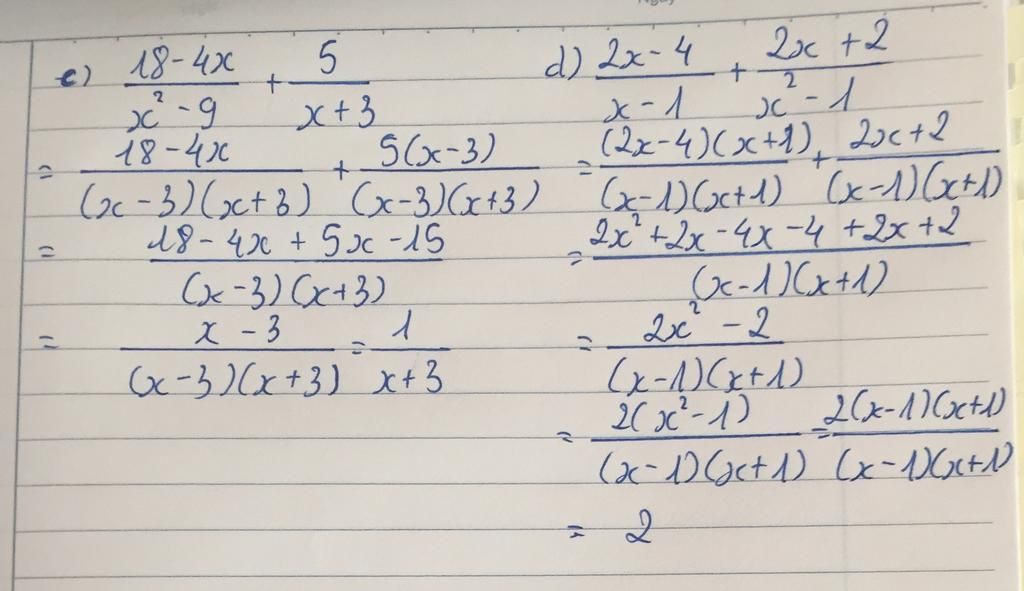 c) (18-4x)/(x²-9) + 5/(x+3)
= (18-4x)/((x-3)(x+3)) + 5(x-3)/((x-3)(x+3))
= (18-4x+5x-15)/((x-3)(x+3))
= (x-3)/((x-3)(x+3)) = 1/(x+3)
d) (2x-4)/(x-1) + (2x+2)/(x²-1)
= (2x-4)(x+1)/((x-1)(x+1)) + (2x+2)/((x-1)(x+1))
= (2x²+2x-4x-4+2x+2)/((x-1)(x+1))
= (2x²-2)/((x-1)(x+1))
= 2(x²-1)/((x-1)(x+1)) = 2(x-1)(x+1)/((x-1)(x+1))
= 2